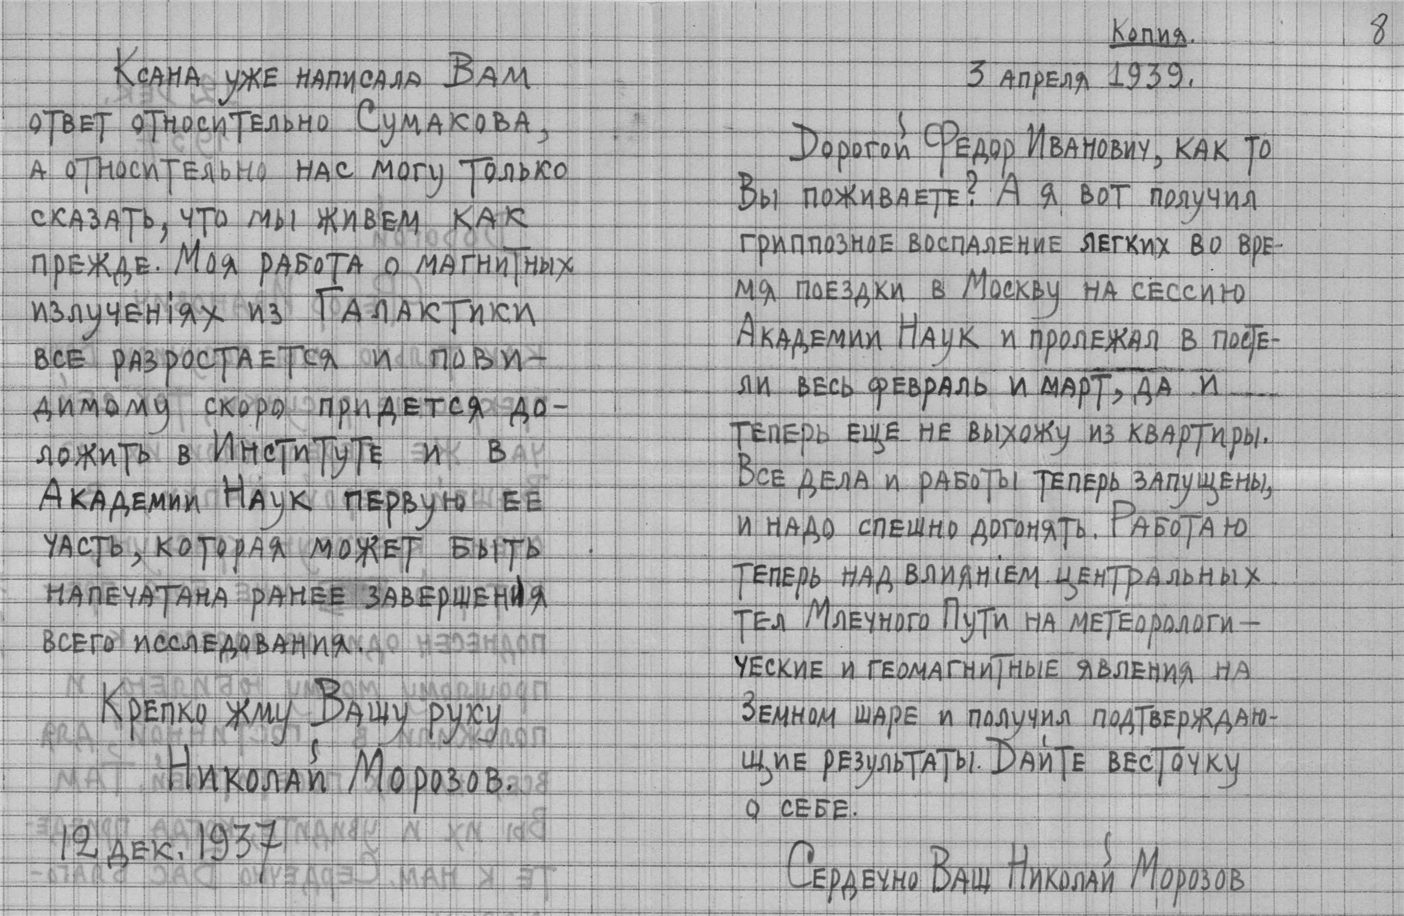 Ксана уже написала Вам
ответ относительно Сумакова,
а относительно нас могу только
сказать, что мы живем как
прежде. Моя работа о магнитных
излученіях из Галактики
все разростается и пови-
димому скоро придется до-
ложить в Институте и в
Академии Наук первую ее
часть, которая может быть
напечатана ранее завершения
всего исследования.
Крепко жму Вашу руку
Николай Морозов.
12 дек. 1937
8
Копия.
3 апреля 1939.
Дорогой Федор Иванович, как то
Вы поживаете? А я вот получил
гриппозное воспаление легких во вре-
мя поездки в Москву на сессию
Академии Наук и пролежал в посте-
ли весь февраль и март, да и
теперь еще не выхожу из квартиры.
Все дела и работы теперь запущены,
и надо спешно догонять. Работаю
теперь над влияніем центральных
тел Млечного Пути на метеорологи-
ческие и геомагнитные явления на
Земном шаре и получил подтверждаю-
щие результаты. Дайте весточку
о себе.
Сердечно Ваш Николай Морозов